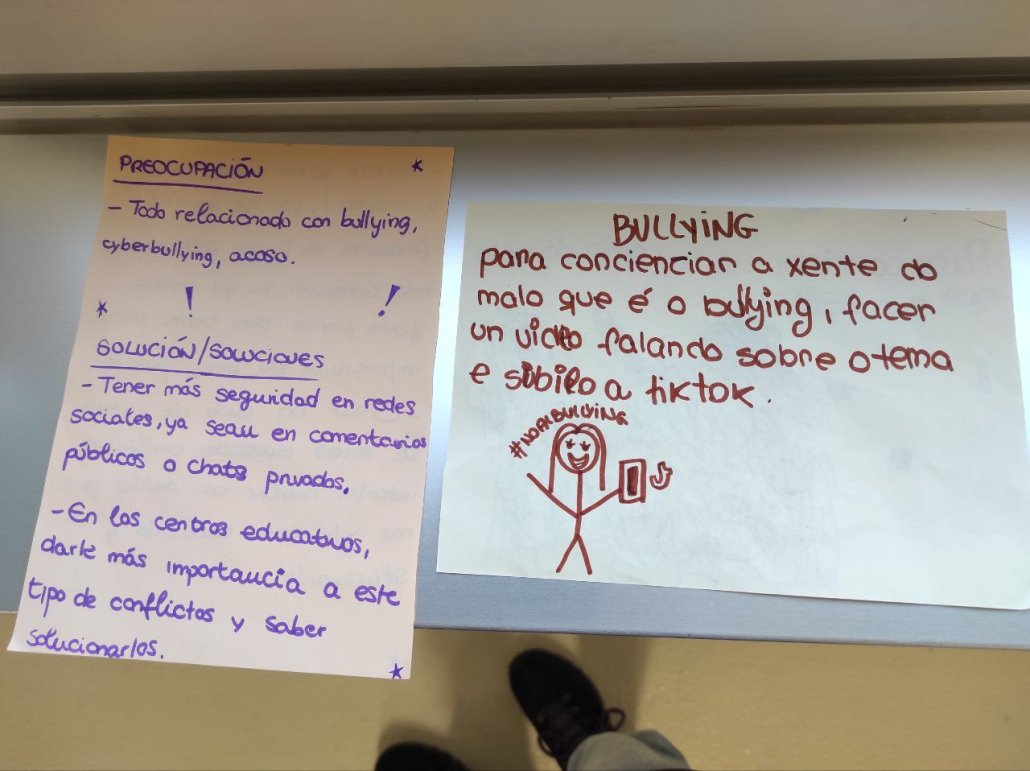 PREOCUPACIÓN
- Todo relacionado con bullying,
cyberbullying, acoso.
! !
SOLUCIÓN/SOLUCIONES
- Tener más seguridad en redes
sociales, ya sean en comentarios
públicos o chats privados.
- En los centros educativos,
darle más importancia a este
tipo de conflictos y saber
solucionarlos.
BULLYING
para concienciar a xente do
malo que é o bullying, facer
un video falando sobre o tema
e subilo a tiktok.
#NOALBULLYING